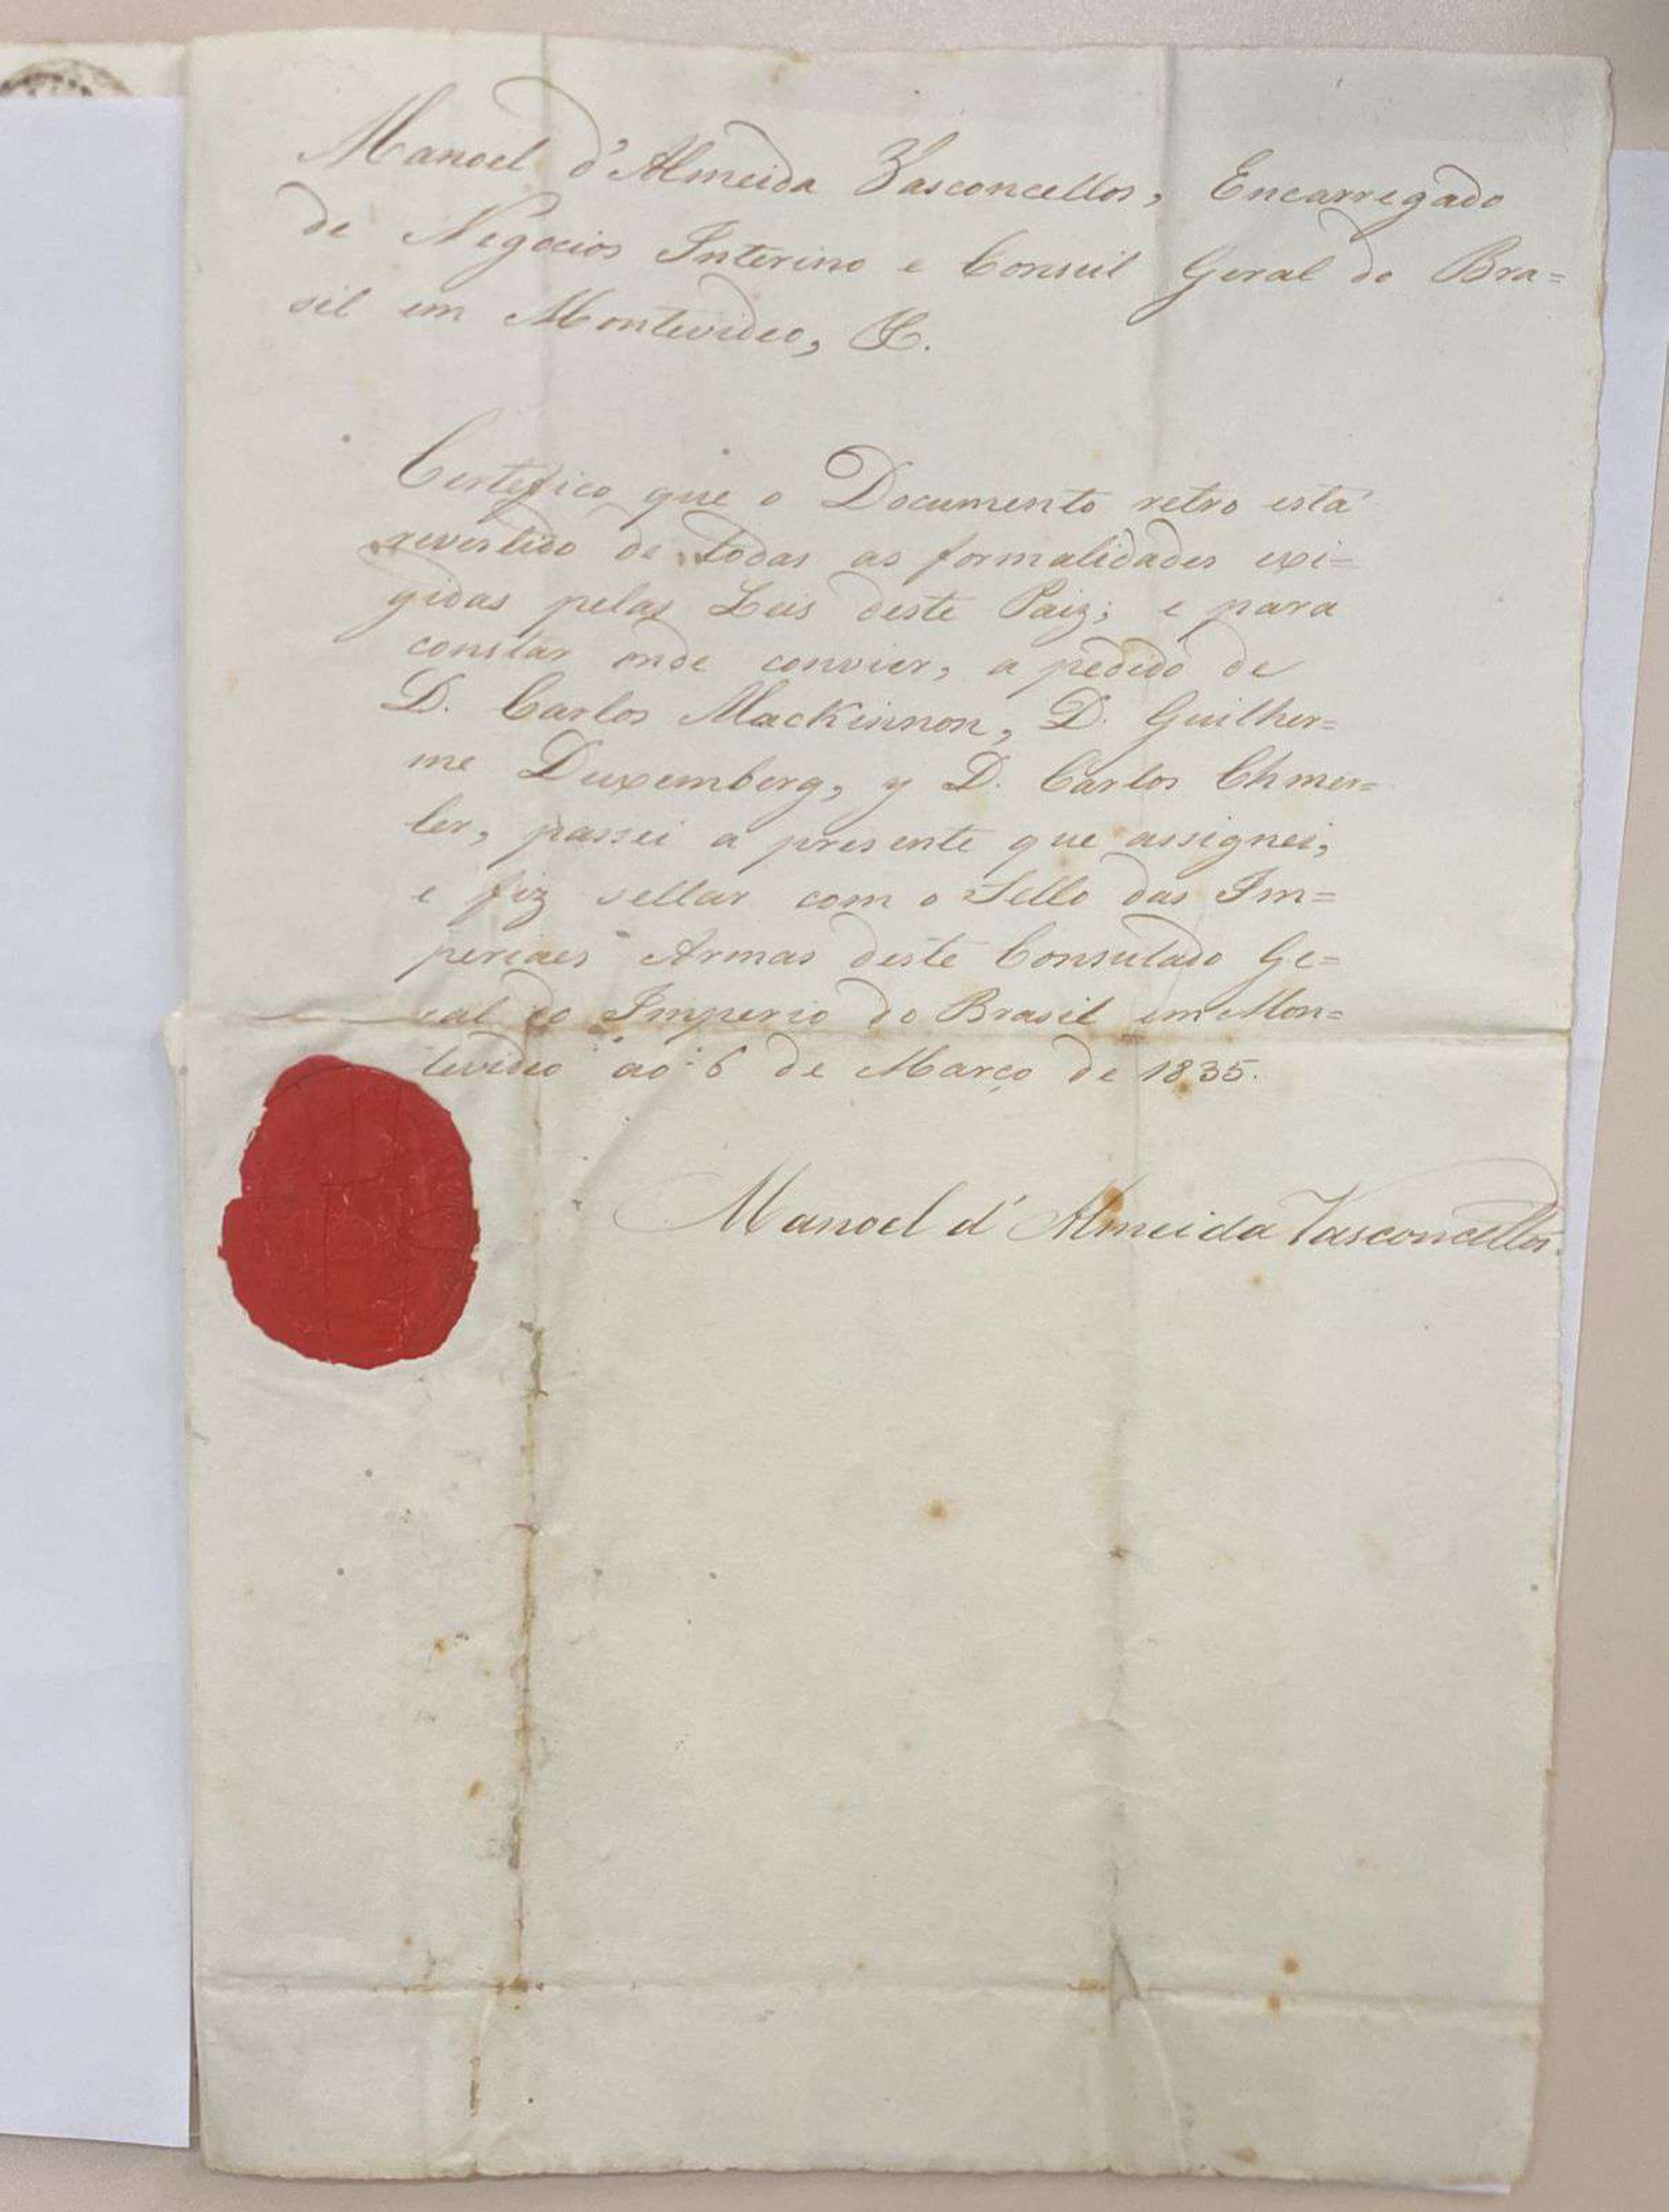 Manoel d'Almeida Vasconcellos, Encarregado
de Negocios Interino e Consul Geral do Bra=
sil em Montevideo, &.
Certefico que o Documento retro está
revestido de todas as formalidades exi=
gidas pelas Leis deste Paiz; e para
constar onde convier, a pedido de
D. Carlos Mackinnon, D. Guilher=
me Duxemberg, y D. Carlos Chmer=
ler, passei a presente que assignei,
e fiz sellar com o Sello das Im=
periaes Armas deste Consulado Ge=
ral do Imperio do Brasil em Mon=
tevideo ao 6 de Março de 1835.
Manoel d'Almeida Vasconcellos.